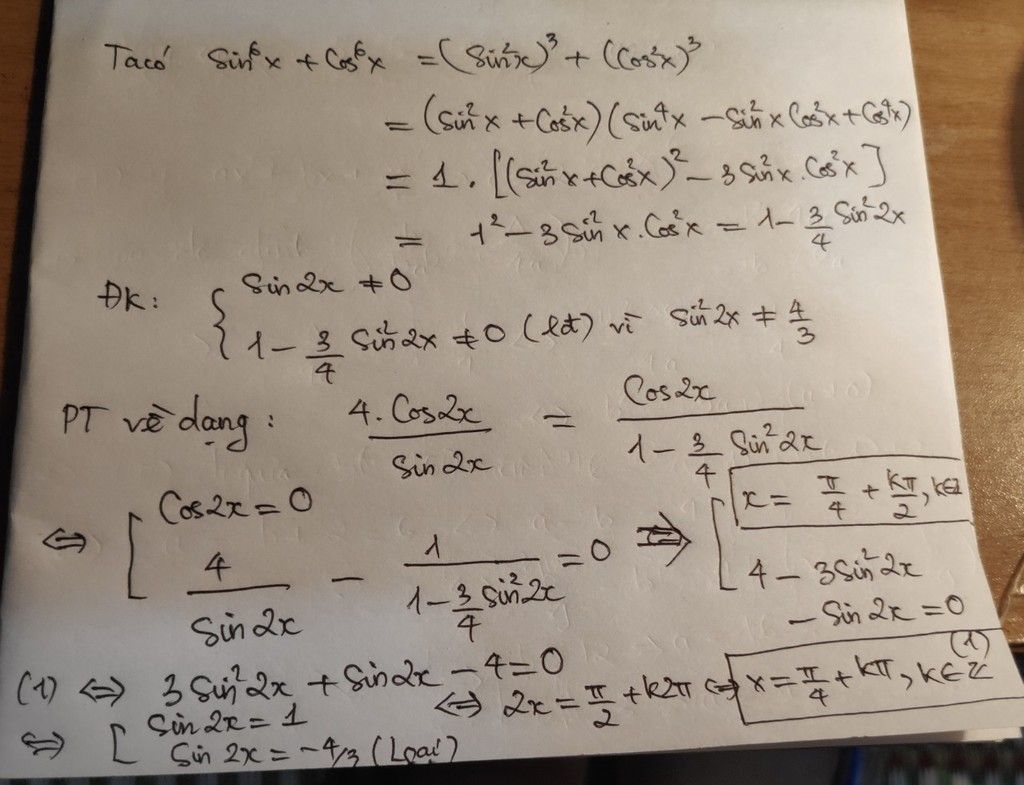 Ta có Sin⁶x + Cos⁶x = (Sin²x)³ + (Cos²x)³
= (Sin²x + Cos²x)(Sin⁴x - Sin²x Cos²x + Cos⁴x)
= 1 . [(Sin²x + Cos²x)² - 3 Sin²x . Cos²x]
= 1² - 3 Sin²x . Cos²x = 1 - 3/4 Sin²2x
ĐK: { Sin2x ≠ 0
1 - 3/4 Sin²2x ≠ 0 (lđ) vì Sin²2x ≠ 4/3
PT về dạng: 4.Cos2x / Sin2x = Cos2x / (1 - 3/4 Sin²2x)
⇔ [ Cos2x = 0
4/Sin2x - 1/(1 - 3/4 Sin²2x) = 0 ⇒ [ x = π/4 + kπ/2, k∈Z
4 - 3Sin²2x
- Sin2x = 0
(1)
(1) ⇔ 3Sin²2x + Sin2x - 4 = 0
⇔ [ Sin2x = 1 ⇔ 2x = π/2 + k2π ⇔ x = π/4 + kπ, k∈Z
Sin2x = -4/3 (Loại)